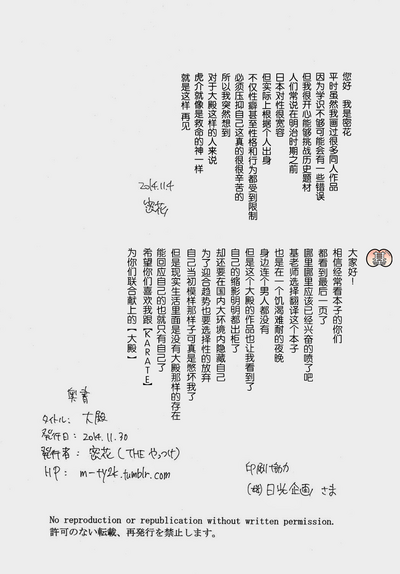 您好 我是密花
平时虽然我画过很多同人作品
因为学识不够可能会有一些错误
但我很开心能够挑战历史题材
人们常说在明治时期之前
日本对性很宽容
但实际上根据个人出身
不仅性癖甚至性格和行为都受到限制
必须压抑自己这真的很很辛苦的
所以我突然想到
对于大殿这样的人来说
虎介就像是救命的神一样
就是这样 再见
2014.11.4
密花
基
大家好！
相信经常看本子的你们
都看到最后一页了
哪里哪里应该已经兴奋的喷了吧
基老师选择翻译这个本子
也是在一个饥渴难耐的夜晚
身边连个男人都没有
但是这个大殿的作品也让我看到了
自己的缩影明明都出柜了
却还要在国内大环境内隐藏自己
为了迎合趋势也要选择性的放弃
自己当初模样那样子可真是憋坏我了
但是现实生活里面是没有大殿那样的存在
能回应自己的也就只有自己了
希望你们喜欢我跟【KARATE】
为你们联合献上的【大殿】
奥書
タイトル：大殿
発行日：2014.11.30
発行者：密花(THEやっつけ)
HP：m-ty2k.tumblr.com
印刷協力
(株)日光企画 さま
No reproduction or republication without written permission.
許可のない転載、再発行を禁止します。